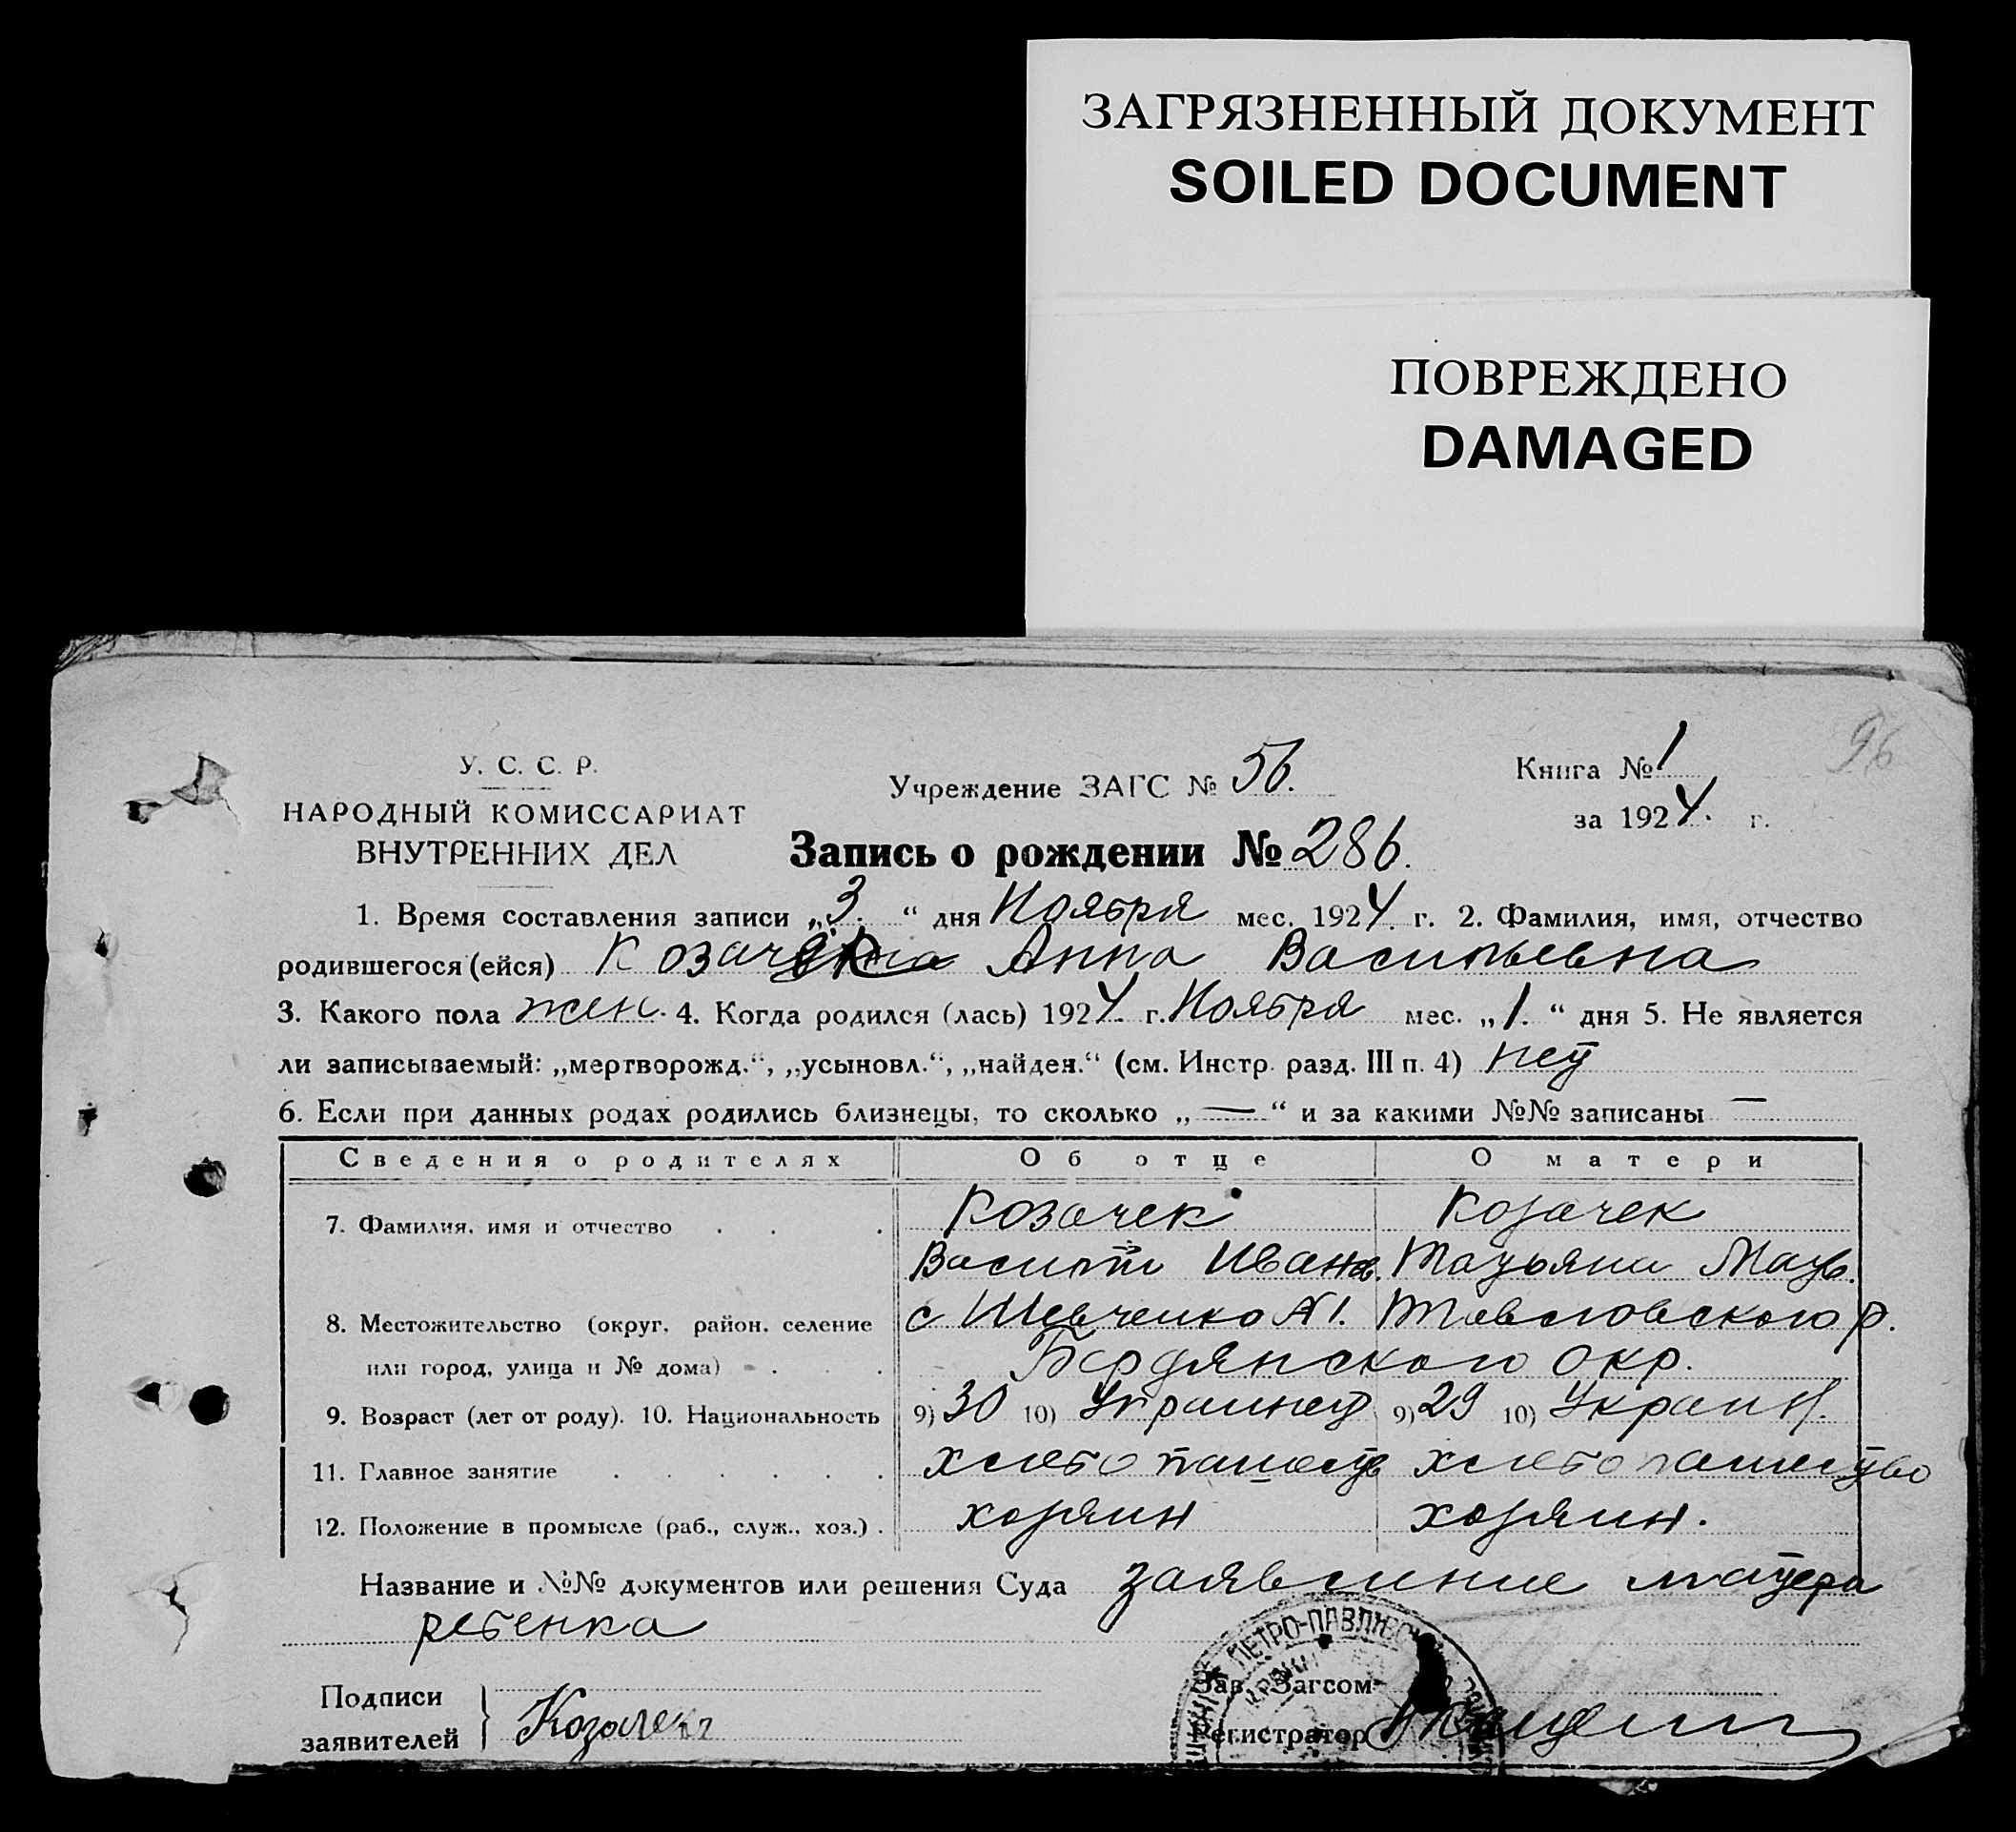 ЗАГРЯЗНЕННЫЙ ДОКУМЕНТ
SOILED DOCUMENT
ПОВРЕЖДЕНО
DAMAGED
96
У. С. С. Р.
НАРОДНЫЙ КОМИССАРИАТ
ВНУТРЕННИХ ДЕЛ
Учреждение ЗАГС № 56.
Книга № 1
за 1924. г.
Запись о рождении № 286.
1. Время составления записи „3.“ дня Ноября мес. 1924. г. 2. Фамилия, имя, отчество
родившегося (ейся) Анна Васильевна
3. Какого пола жен. 4. Когда родился (лась) 1924. г. Ноября мес. „1.“ дня 5. Не является
ли записываемый: „мертворожд.“, „усыновл.“, „найден.“ (см. Инстр. разд. III п. 4) нет
6. Если при данных родах родились близнецы, то сколько „—“ и за какими №№ записаны —
Сведения о родителях Об отце О матери
7. Фамилия, имя и отчество Козачек Козачек
Иванов. Татьяна
8. Местожительство (округ, район, селение с Шевченко №1. р.
или город, улица и № дома) Бердянского окр.
9. Возраст (лет от роду). 10. Национальность 9) 30 10) Украинец 9) 29 10) Украин.
11. Главное занятие хлебопашеств хлебопашество
12. Положение в промысле (раб., служ., хоз.) хозяин хозяин.
Название и №№ документов или решения Суда заявление матери
ребенка
Подписи
заявителей Козачек
ПЕТРО-ПАВЛ
Зав. Загсом
Регистратор